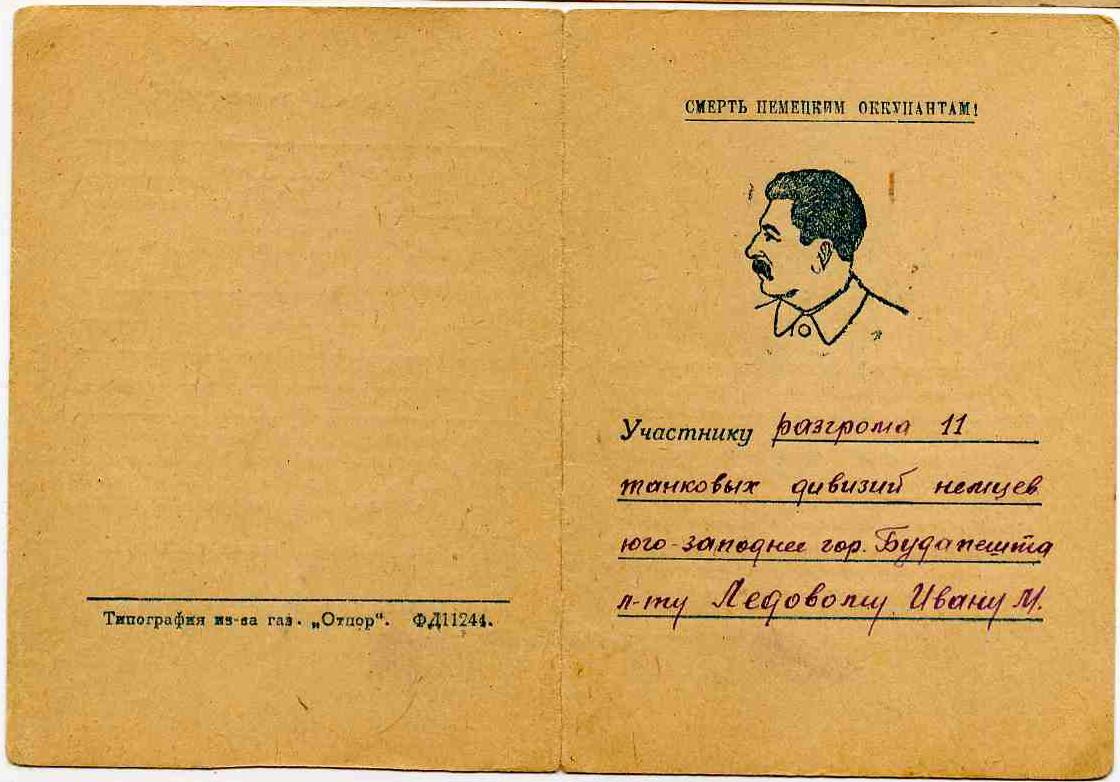 Типография из-ва газ. „Отпор“. ФД11244.
СМЕРТЬ НЕМЕЦКИМ ОККУПАНТАМ!
Участнику разгрома 11
танковых дивизий немцев
юго-западнее гор. Будапешта
л-ту Ледовому Ивану М.